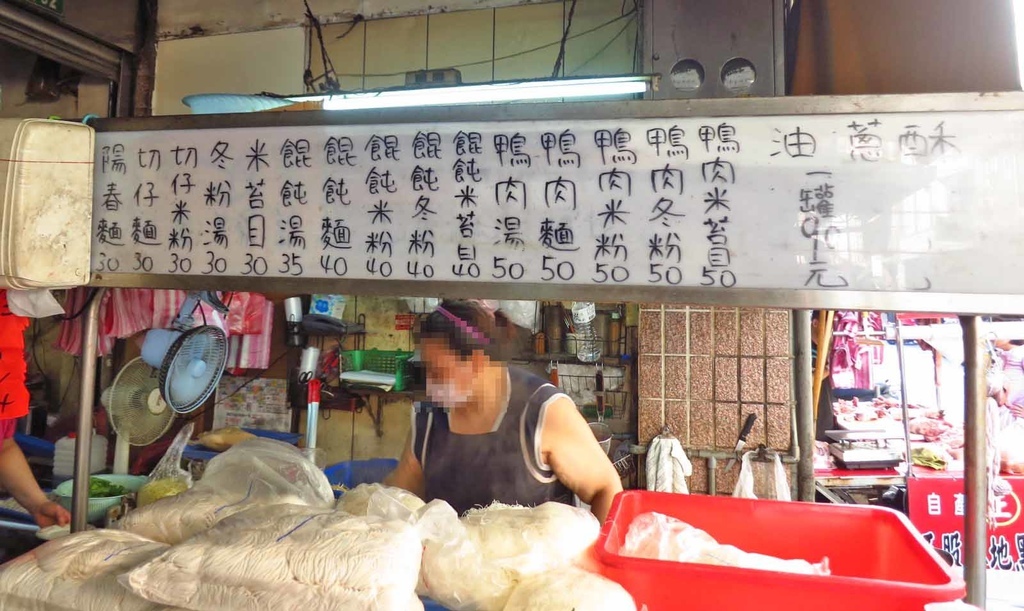 陽春麵30
切仔麵30
切仔米粉30
冬粉湯30
米苔目30
餛飩湯35
餛飩麵40
餛飩米粉40
餛飩冬粉40
餛飩米苔目40
鴨肉湯50
鴨肉麵50
鴨肉米粉50
鴨肉冬粉50
鴨肉米苔目50
油蔥酥
一罐90元
自產
正